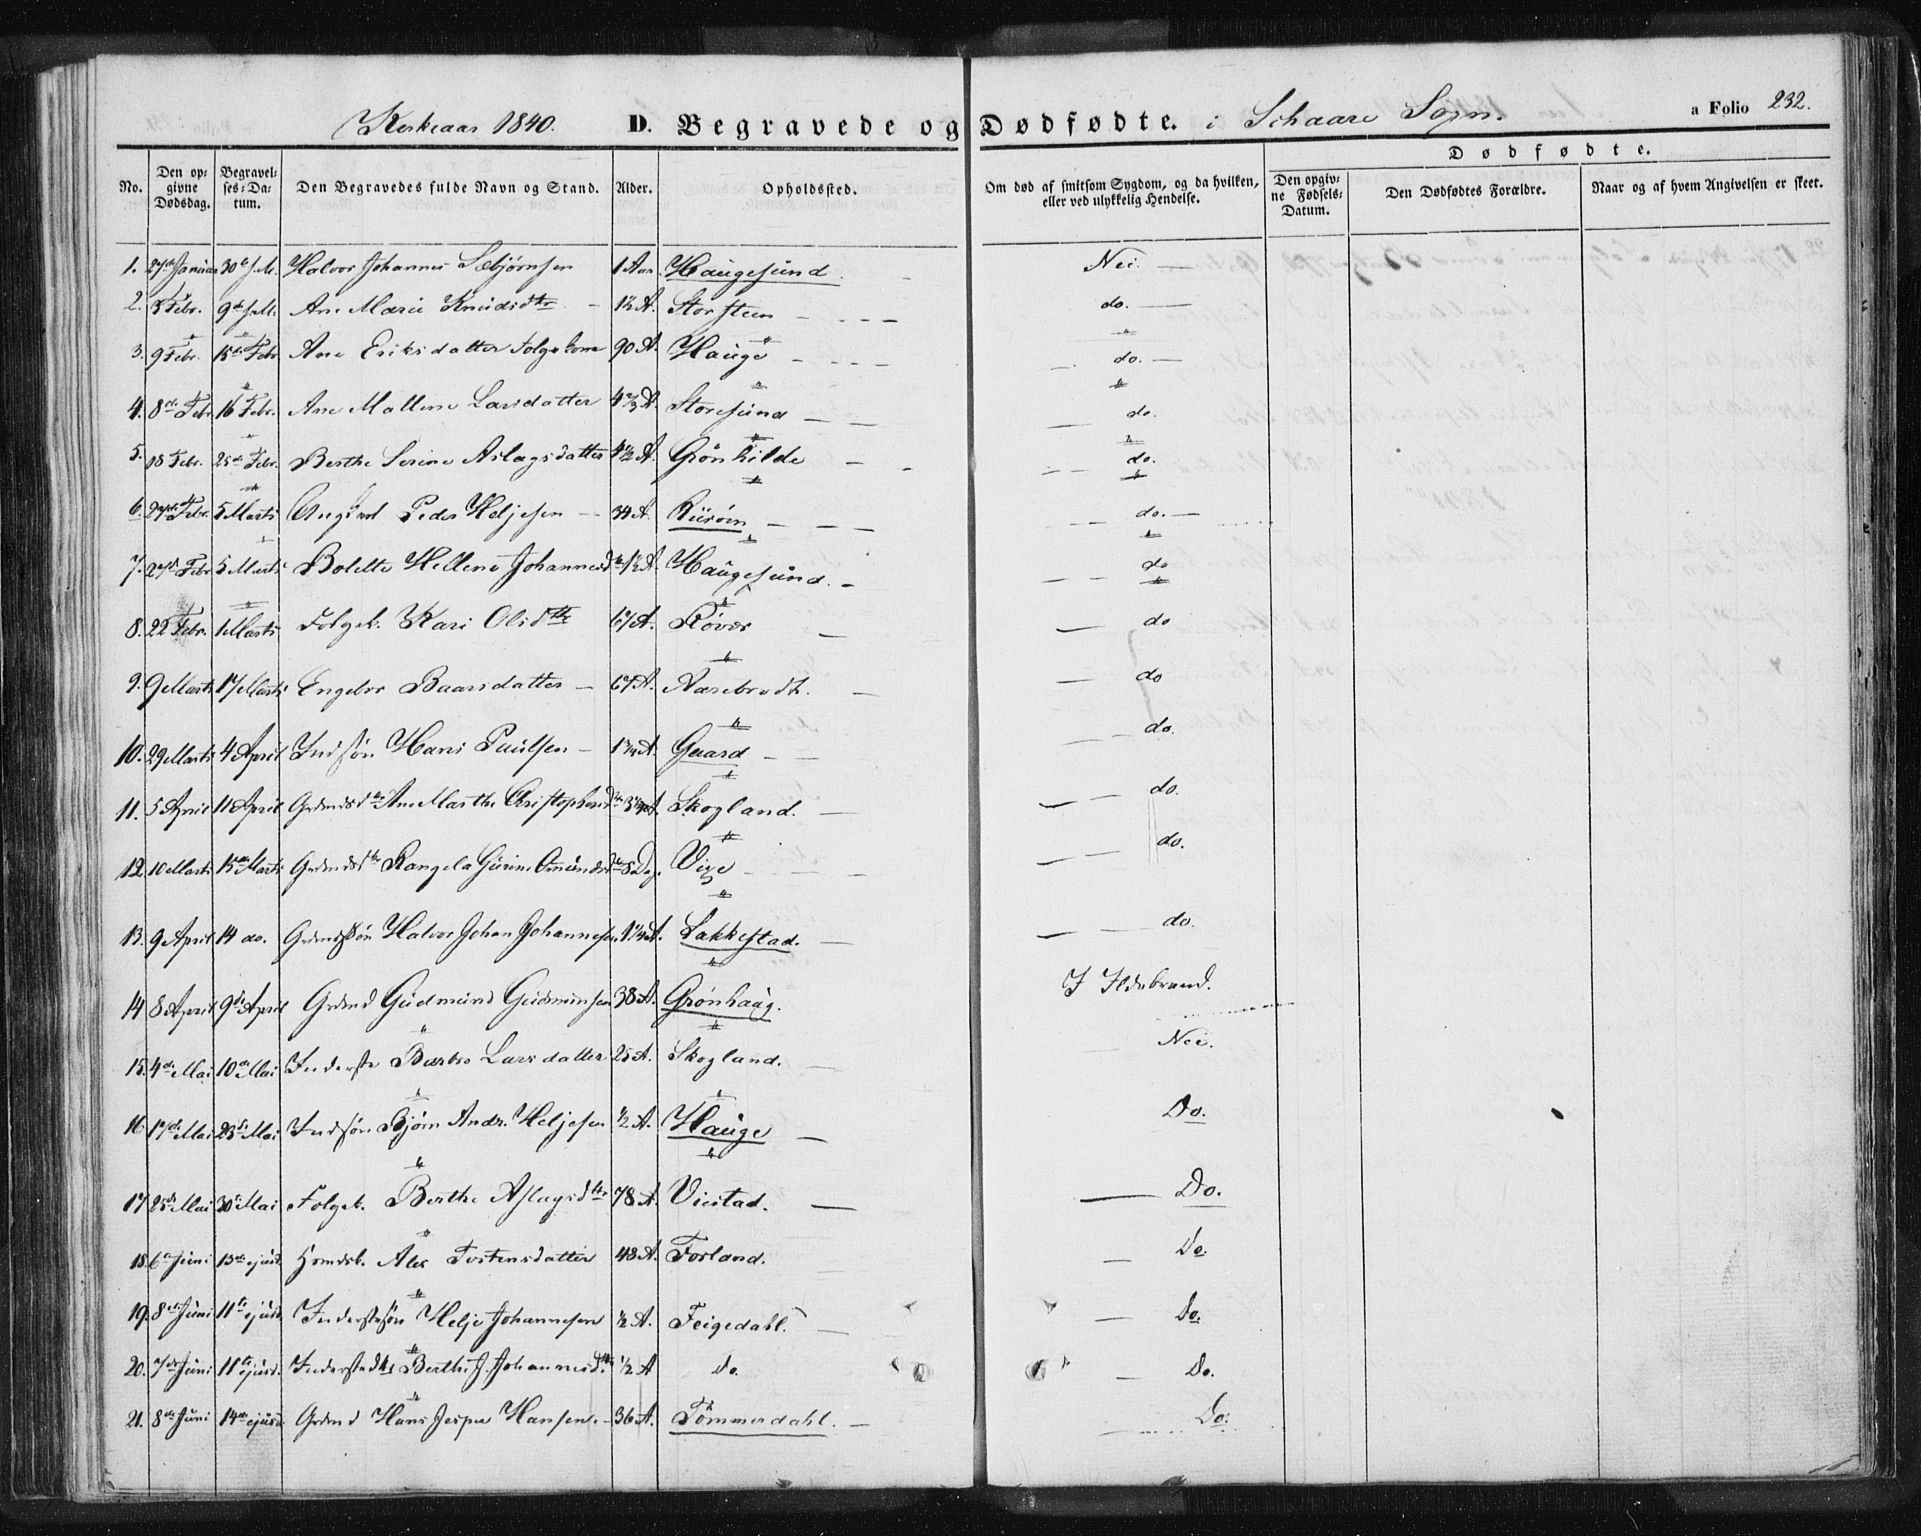 Kirkeaar 1840. D. Begravede og Dødfødte. i Schaare Sogn. a Folio 232.
Dødfødte.
No. Den opgivne Dødsdag. Begravelses-Datum. Den Begravedes fulde Navn og Stand. Alder. Opholdssted. Om død af smitsom Sygdom, og da hvilken, eller ved ulykkelig Hendelse. Den opgivne Fødsels-Datum. Den Dødfødtes Forældre. Naar og af hvem Angivelsen er skeet.
1. 27de Januar 30te s.M. Halvor Johannes Sebjørnsen 1 Aar. Haugesund. Nei.
2. 3 Febr. 9de s.M. Ane Marie Knudsdtr 1½ A. Storsteen do.
3. 9 Febr. 15de Febr. Ane Eriksdatter Folgekone 90 A. Hauge do.
4. 8de Febr. 16 Febr. Ane Mallene Larsdatter Storesund do.
5. 18 Febr. 25de Febr. Berthe Serine Aslagsdatter 4½ A. Grønhilde do.
6. 27de Febr. 5 Marts Peder Heljesen 34 A. do.
7. 27de Febr. 5 Marts Bolette Hellene Johannesdtr 1½ A. Haugesund. do
8. 22 Febr. 1 Marts Folgek. Kari Olsdtr 67 A. Røvær do
9. 9 Marts 17 Marts Engebor Baarsdatter 67 A. Aarebrodt. do
10. 29 Marts 4 April Indsøn Hans Paulsen 1¾ A. Gaard do.
11. 5 April 11 April Grdmdsdtr Ane Marthe Christophersdtr Skogland. do.
12. 10 Marts 15de Marts Grdmdsdtr Rangela Gurine Omundsdtr 8 Dag. Vige do.
13. 9 April 14 do. Grdmdssøn Halvor Johan Johannesen 1¼ A. Lakkestad. do.
14 8 April 9de April Grdmd Gudmund Gudmunsen 38 A. Grønhaug. I Ildebrand.
15. 4de Mai 10de Mai Inderste Barbro Larsdatter 25 A. Skogland. Nei.
16 17de Mai 23de Mai Indsøn Bjørn Andr. Heljesen ½ A. Hauge Do.
17 25de Mai 30te Mai Folgek. Berthe Aslagsdtr 78 A. Viestad. Do.
18. 6te Juni 13de ejusd. Huusmdsk. Ales Tostensdatter 48 A. Forland. Do.
19. 8de Juni 11te ejusd. Inderstesøn Helje Johannesen ½ A. Feigedahl. Do.
20. 7de Juni 11te ejusd. Inderstedtr Berthe J. Johannesdtr ½ A do. Do.
21. 8de Juni 14de ejusd. Grdmd Hans Jesper Hansen. 36 A. Tømmerdahl. Do.